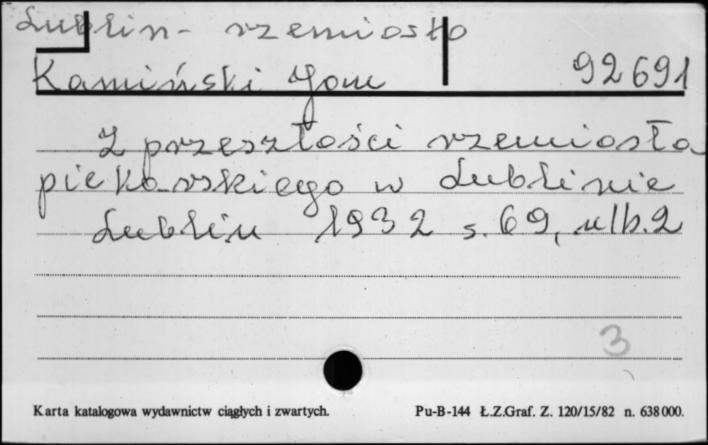 Lublin - rzemiosło
Kamiński Jan 92691
Z przeszłości rzemiosła
piekarskiego w Lublinie
Lublin 1932 s. 69, nlb. 2
3
Karta katalogowa wydawnictw ciągłych i zwartych. Pu-B-144 Ł.Z.Graf. Z. 120/15/82 n. 638 000.